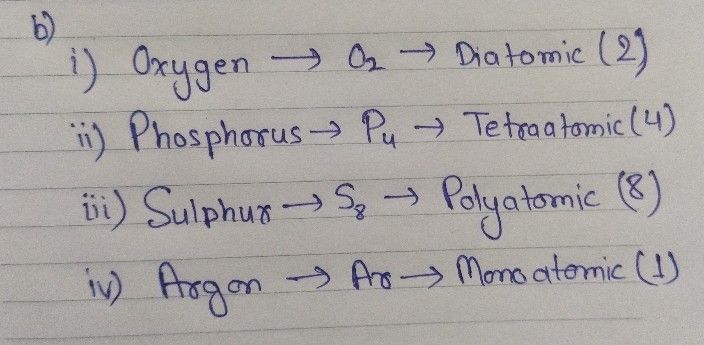 b)
i) Oxygen → O₂ → Diatomic (2)
ii) Phosphorus → P₄ → Tetraatomic (4)
iii) Sulphur → S₈ → Polyatomic (8)
iv) Argon → Ar → Monoatomic (1)